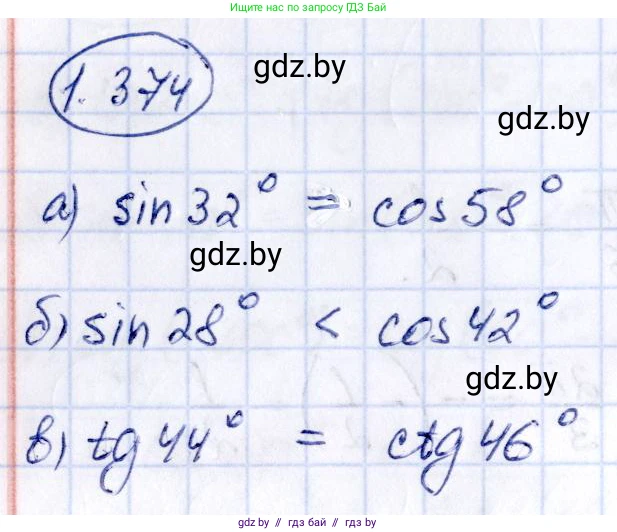 Ищите нас по запросу ГДЗ Бай
1.374
gdz.by
gdz.by
а) sin 32° = cos 58°
gdz.by
б) sin 28° < cos 42°
gdz.by
в) tg 44° = ctg 46°
gdz.by // гдз бай // гдз by